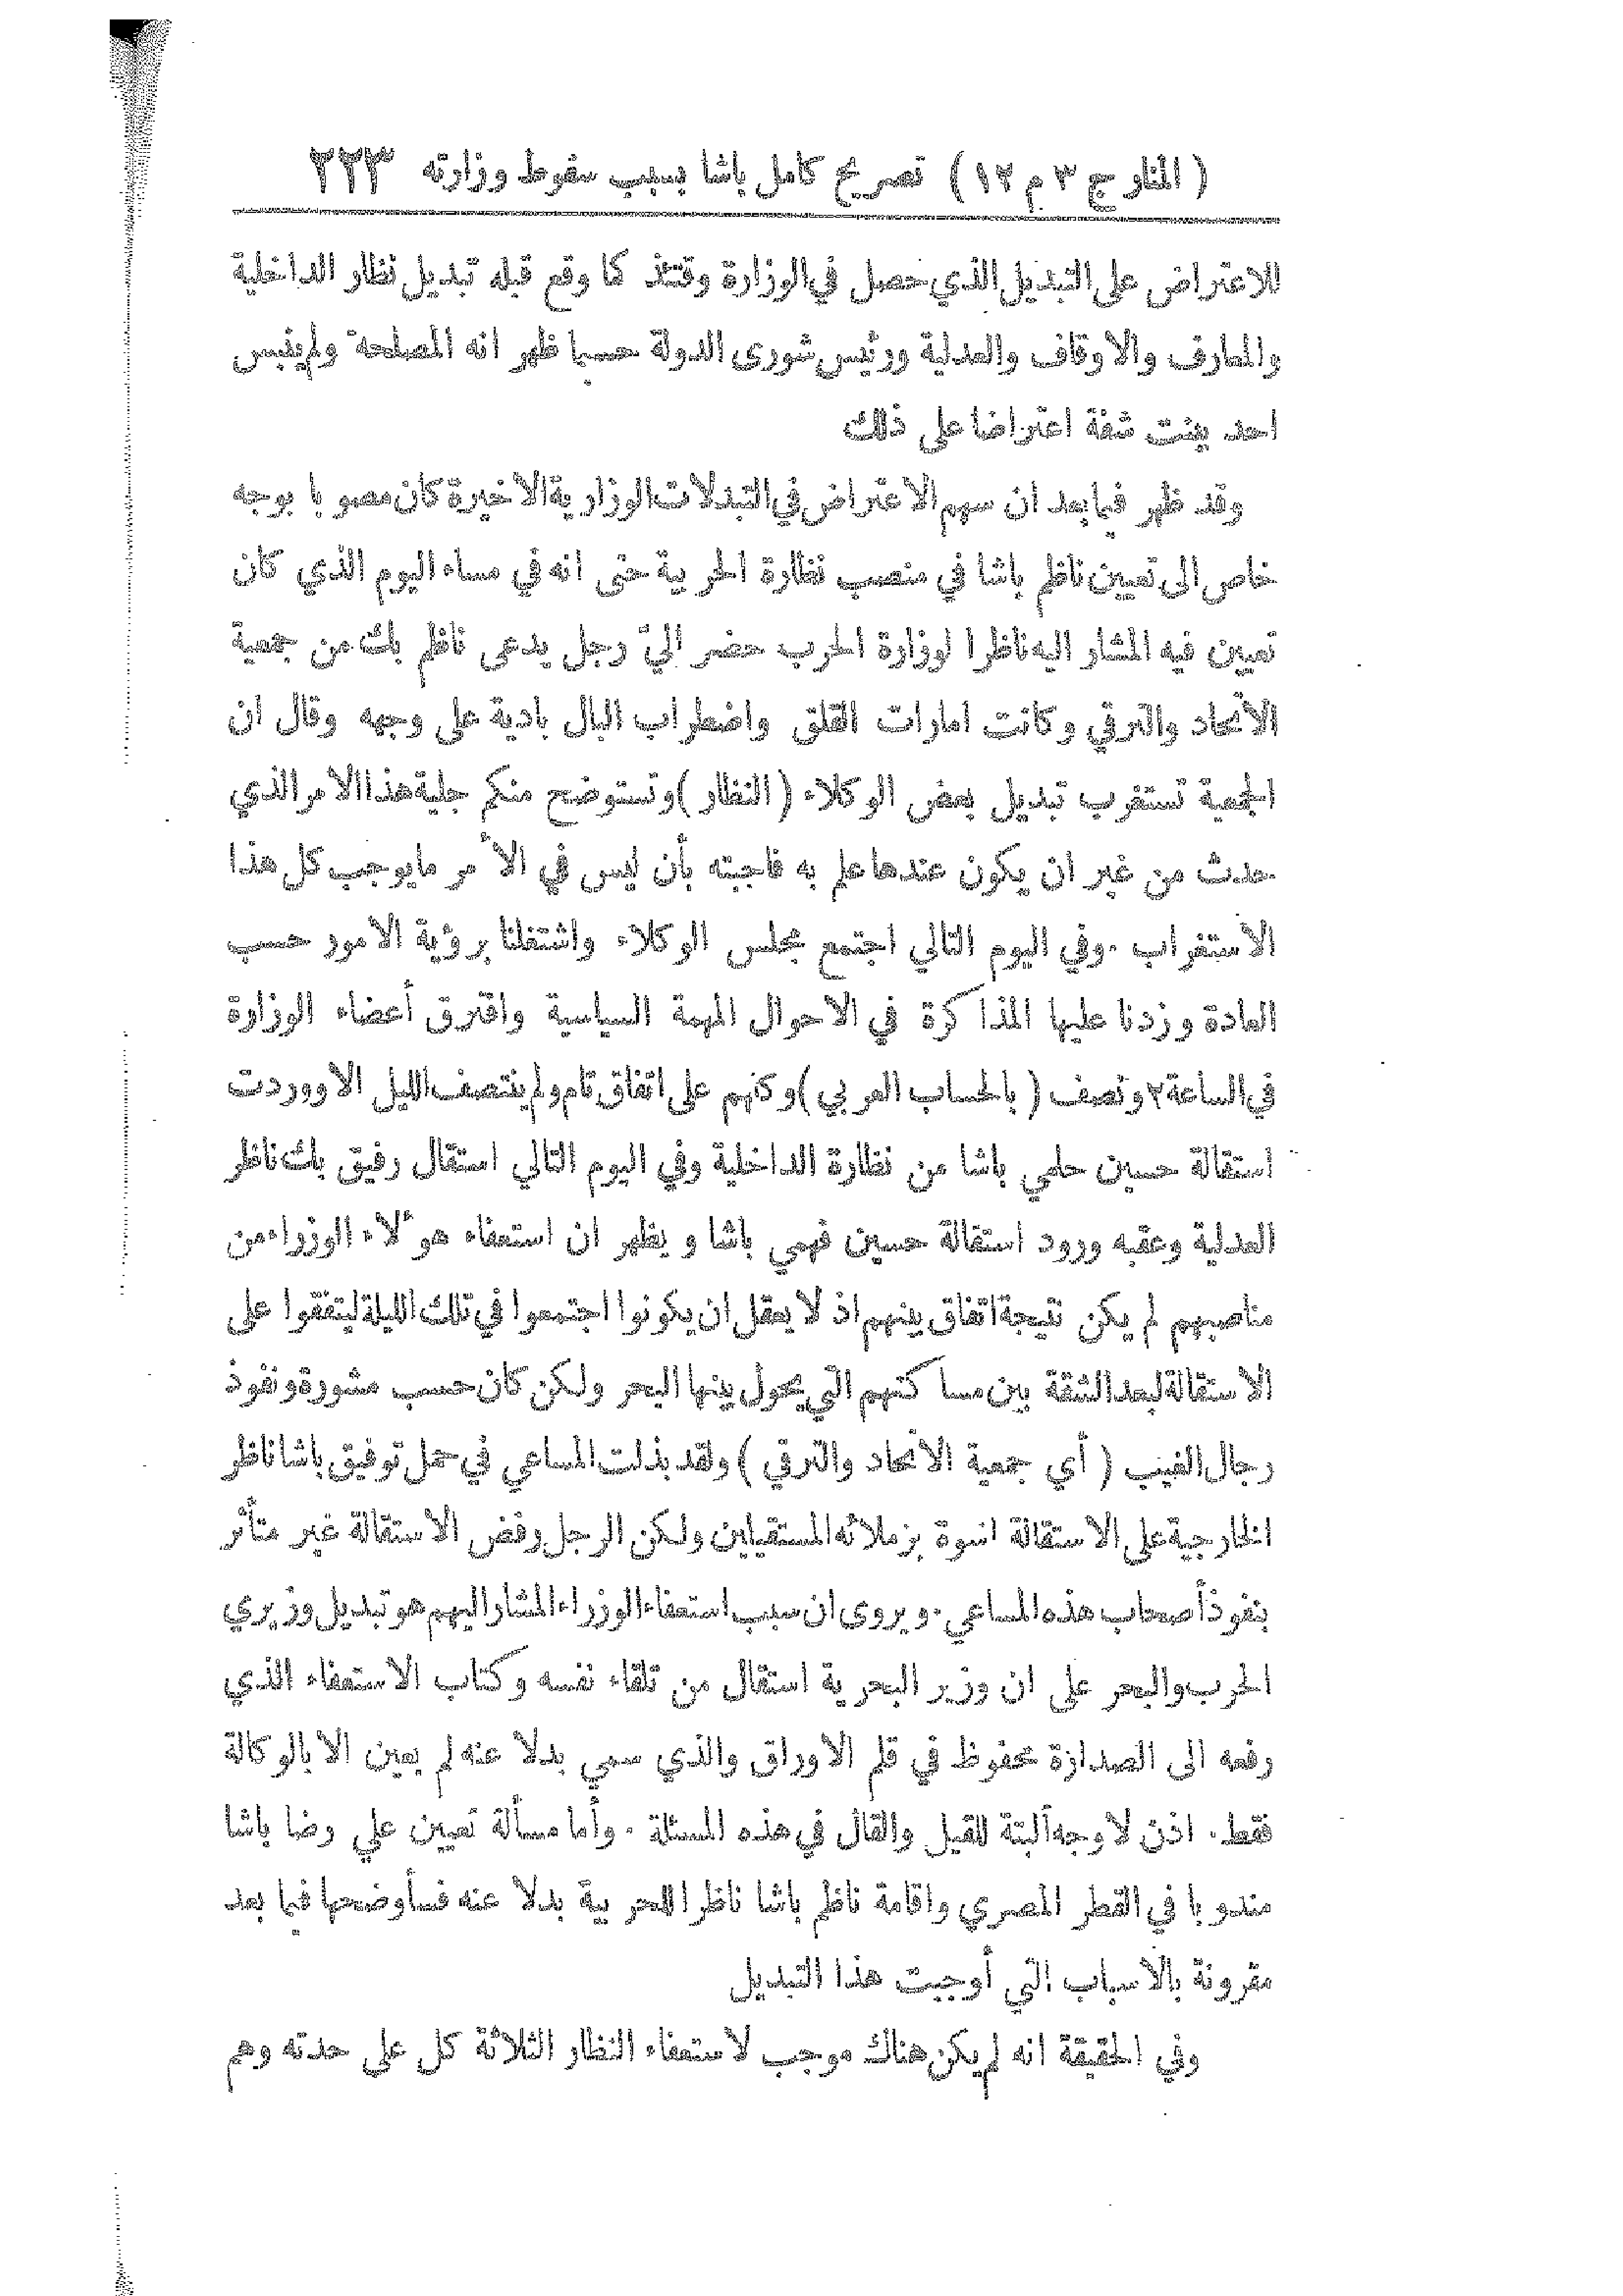 ( المنار ج ٣ م ١٢ ) تصريح كامل باشا بسبب سقوط وزارته ٢٢٣
للاعتراض على التبديل الذي حصل في الوزارة وقتئذ كما وقع قبله تبديل نظار الداخلية
والمعارف والاوقاف والعدلية ورئيس شورى الدولة حسبما ظهر انه المصلحة ولم ينبس
احد ببنت شفة اعتراضا على ذلك
وقد ظهر فيما بعد ان سهم الاعتراض في التبدلات الوزارية الاخيرة كان مصوبا بوجه
خاص الى تعيين ناظم باشا في منصب نظارة الحربية حتى انه في مساء اليوم الذي كان
تعيين فيه المشار اليه ناظرا لوزارة الحرب حضر اليّ رجل يدعى ناظم بك من جمعية
الاتحاد والترقي وكانت امارات القلق واضطراب البال بادية على وجهه وقال ان
الجمعية تستغرب تبديل بعض الوكلاء ( النظار ) وتستوضح منكم جلية هذا الامر الذي
حدث من غير ان يكون عندها علم به فاجبته بأن ليس في الأمر ما يوجب كل هذا
الاستغراب . وفي اليوم التالي اجتمع مجلس الوكلاء واشتغلنا برؤية الامور حسب
العادة وزدنا عليها المذاكرة في الاحوال المهمة السياسية وافترق أعضاء الوزارة
في الساعة ٢ ونصف ( بالحساب العربي ) وكلهم على اتفاق تام ولم ينتصف الليل الا ووردت
استقالة حسين حلمي باشا من نظارة الداخلية وفي اليوم التالي استقال رفيق بك ناظر
العدلية وعقبه ورود استقالة حسين فهمي باشا ويظهر ان استعفاء هؤلاء الوزراء من
مناصبهم لم يكن نتيجة اتفاق بينهم اذ لا يعقل ان يكونوا اجتمعوا في تلك الليلة ليتفقوا على
الاستقالة لبعد الشقة بين مساكنهم التي يحول بينها البحر ولكن كان حسب مشورة ونفوذ
رجال الغيب ( أي جمعية الاتحاد والترقي ) ولقد بذلت المساعي في حمل توفيق باشا ناظر
الخارجية على الاستقالة اسوة بزملائه المستقيلين ولكن الرجل رفض الاستقالة غير متأثر
بنفوذ أصحاب هذه المساعي . ويروى ان سبب استعفاء الوزراء المشار اليهم هو تبديل وزيري
الحرب والبحر على ان وزير البحرية استقال من تلقاء نفسه وكتاب الاستعفاء الذي
رفعه الى الصدارة محفوظ في قلم الاوراق والذي سمي بدلا عنه لم يعين الا بالوكالة
فقط . اذن لا وجه ألبتة للقيل والقال في هذه المسئلة . وأما مسألة تعيين علي رضا باشا
مندوبا في القطر المصري واقامة ناظم باشا ناظرا للحربية بدلا عنه فسأوضحها فيما بعد
مقرونة بالاسباب التي أوجبت هذا التبديل
وفي الحقيقة انه لم يكن هناك موجب لاستعفاء النظار الثلاثة كل على حدته وهم